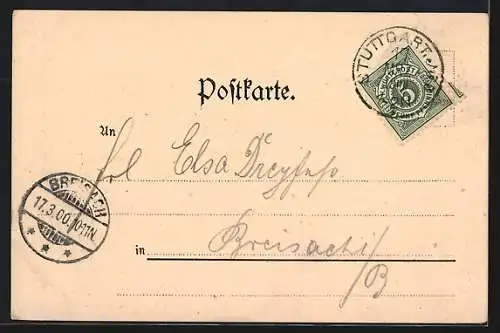 STUTTGART
5
Postkarte.
An
Frl Elsa Dreyfuss
BREISACH
17.3.00.10-11N.
in Breisach
/B